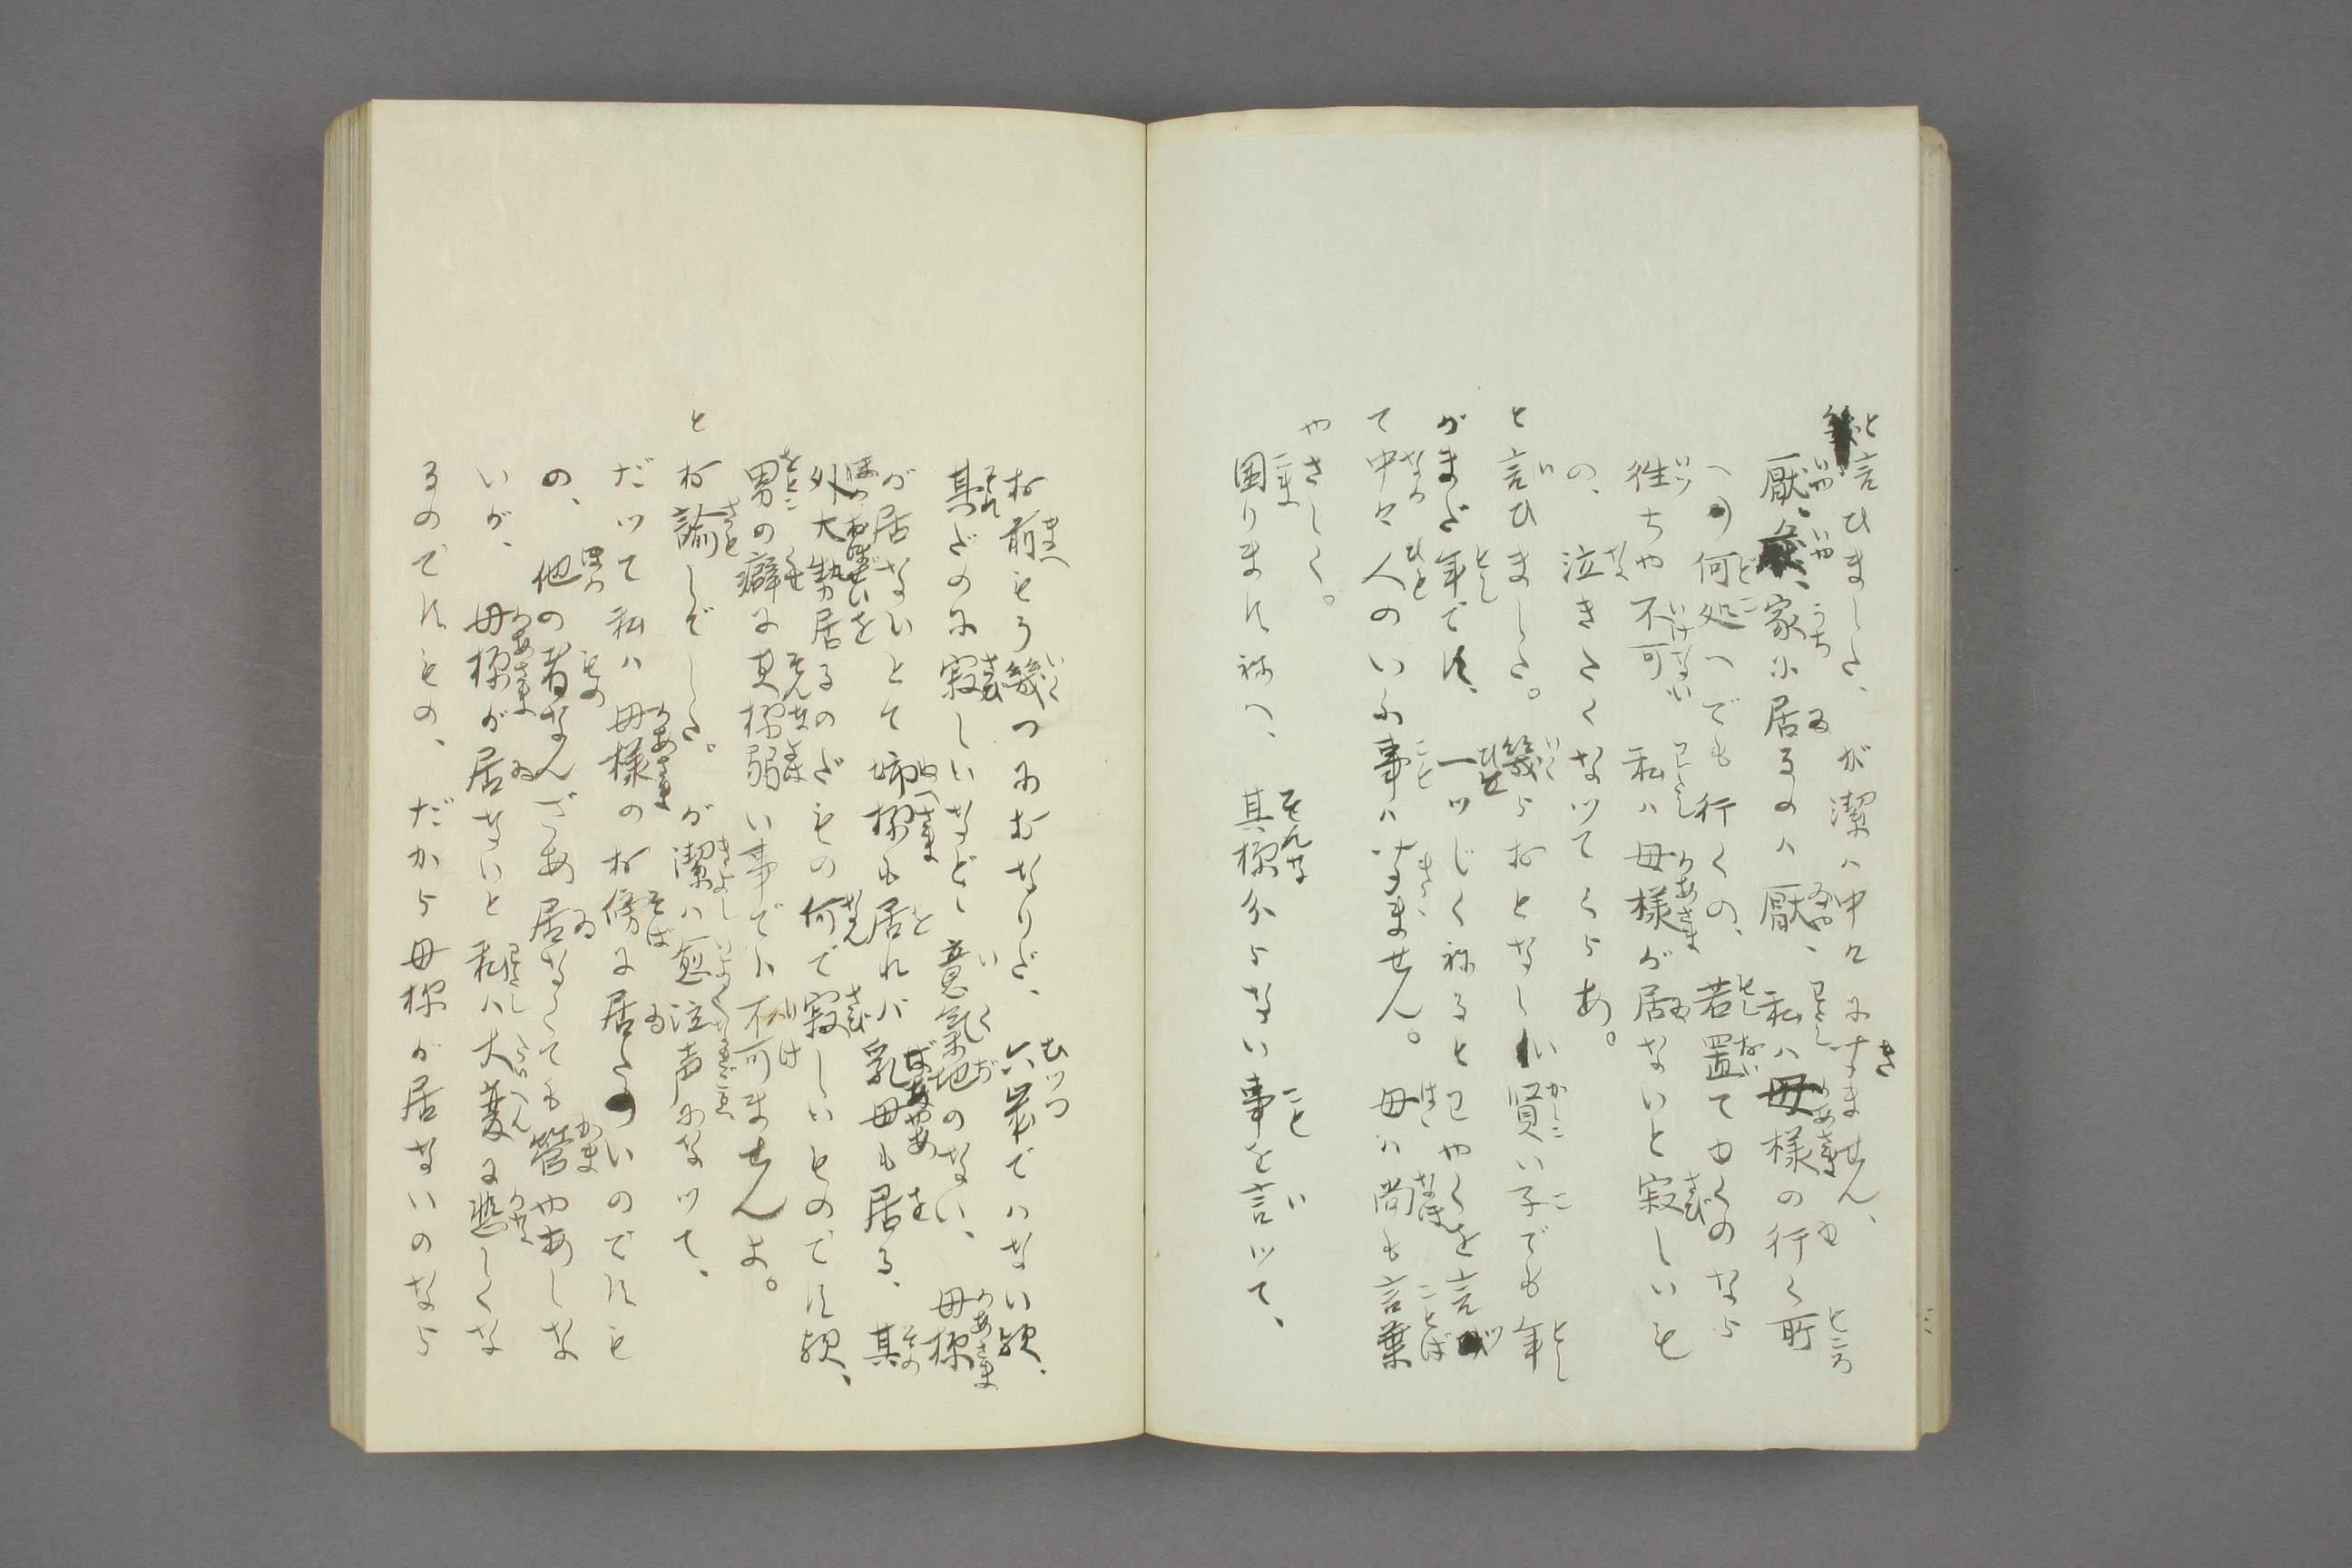 と言ひました、が潔ハ中々にきません、
厭、厭、家に居るのハ厭、私ハ母様の行く所
へ何処へでも行くの、若置てゆくのなら
往ちや不可、私ハ母様が居ないと寂しいも
の、泣きたくなツてくらあ。
と言ひました。幾らおとなしい賢い子でも年
がまだ年です、一ツじく祢るとわやくを言ツ
て中々人のいふ事ハきゝません。母ハ尚も言葉
やさしく。
困りますねへ、其様分らない事を言ツて、
お前もう幾つにおなりだ、六歳でハない歟、
其だのに寂しいなどゝ意気地のない、母様
が居ないとて姉様も居れバ乳母も居る、其
外大勢居るのだもの何で寂しいものです歟、
男の癖に其様弱い事でハ不可ませんよ。
とお諭しでした。が潔ハ愈泣声になツて、
だツて私ハ母様のお傍に居たいのですも
の、他の者なんざあ居なくても管やあしな
いが、母様が居ないと私ハ大変に悲しくな
るのですもの、だから母様が居ないのなら